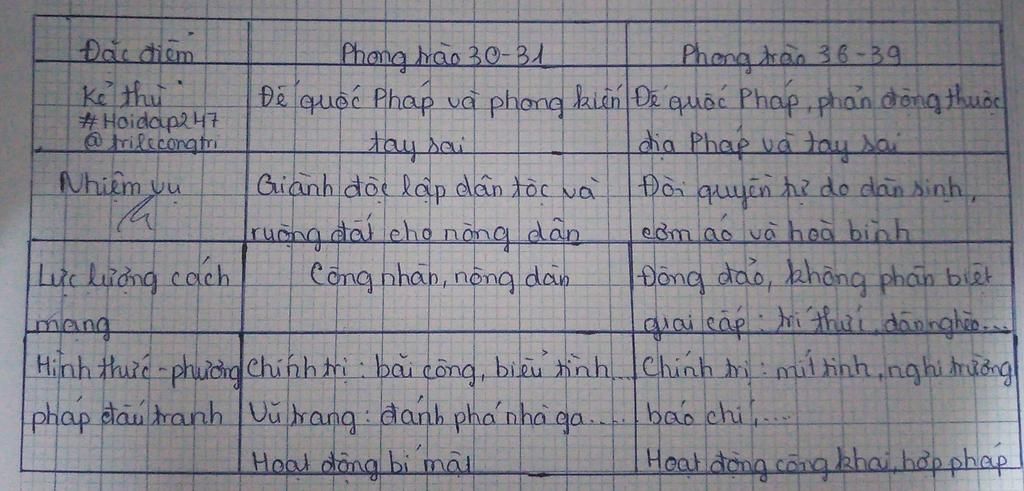 Đặc điểm
Phong trào 30-31
Phong trào 36-39
Kẻ thù
#Hoidap247
Đế quốc Pháp và phong kiến
tay sai
Đế quốc Pháp, phản động thuộc
địa Pháp và tay sai
Nhiệm vụ
Giành độc lập dân tộc và
ruộng đất cho nông dân
Đòi quyền tự do dân sinh,
cơm áo và hoà bình
Lực lượng cách
mạng
Công nhân, nông dân
Đông đảo, không phân biệt
giai cấp: trí thức, dân nghèo...
Hình thức - phương
pháp đấu tranh
Chính trị: bãi công, biểu tình...
Vũ trang: đánh phá nhà ga....
Hoạt động bí mật
Chính trị: mít tinh, nghị trường
báo chí,....
Hoạt động công khai, hợp pháp